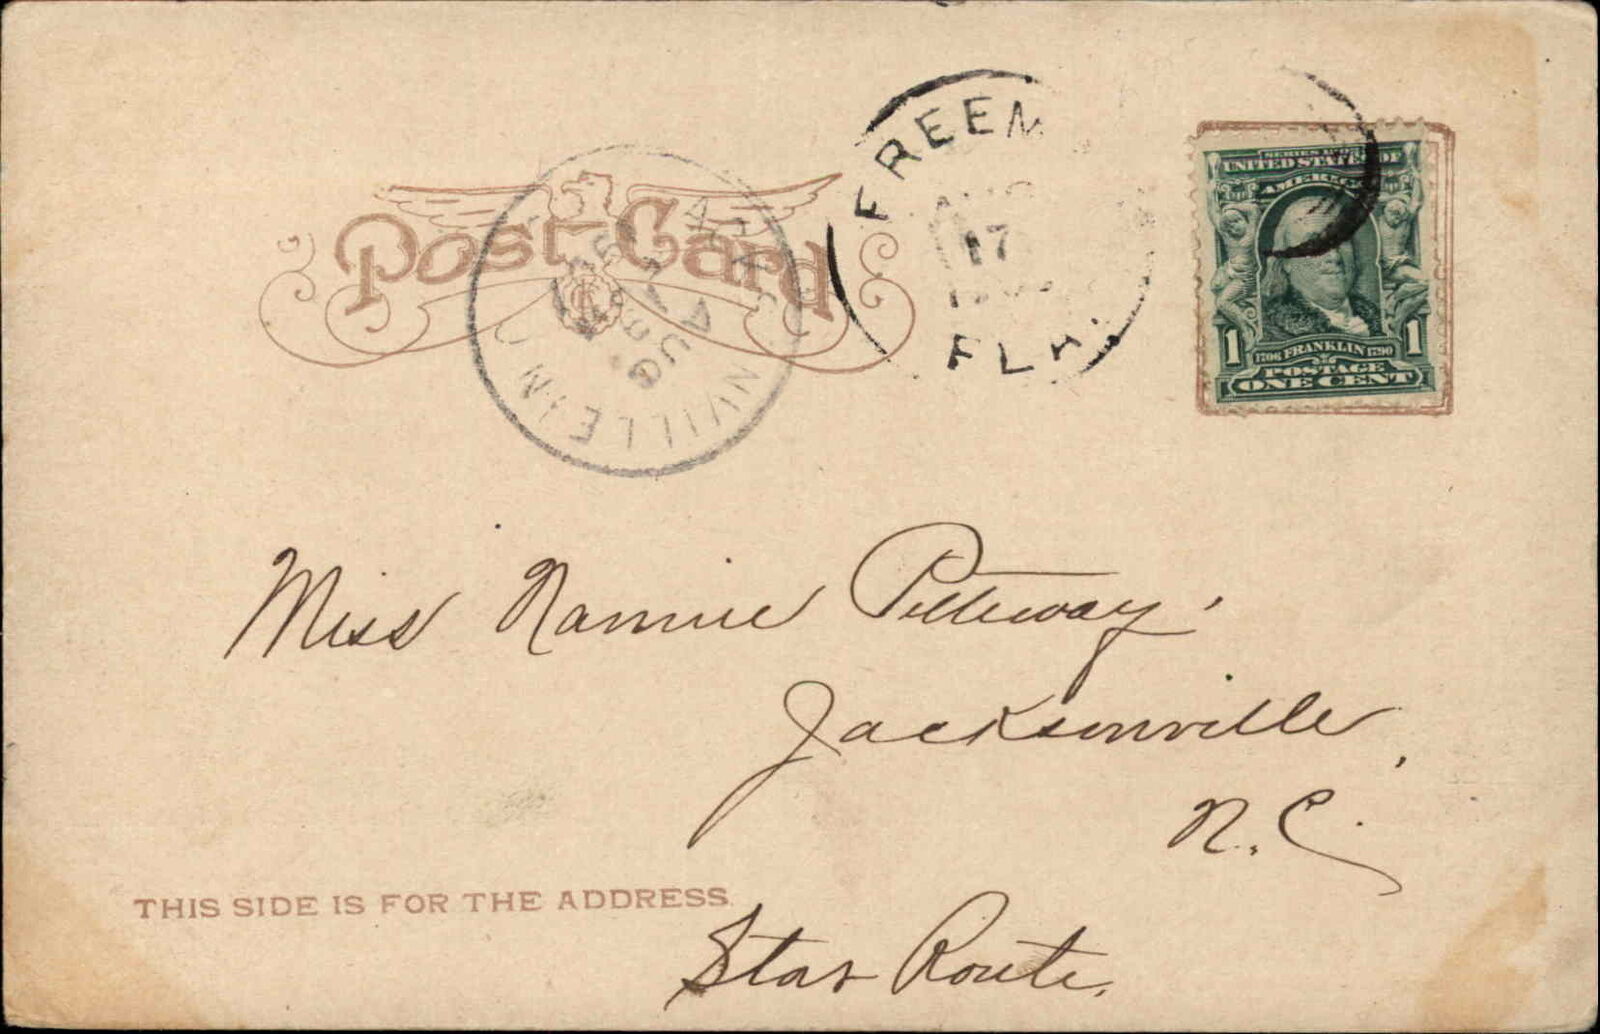 Post Card
FREEM
AUG
17
FLA.
AUG
SERIES 1902
UNITED STATES OF
AMERICA
1706 FRANKLIN 1790
1 1
POSTAGE
ONE CENT
Miss Nannie Pitteway,
Jacksonville,
N. C.
THIS SIDE IS FOR THE ADDRESS.
Star Route.